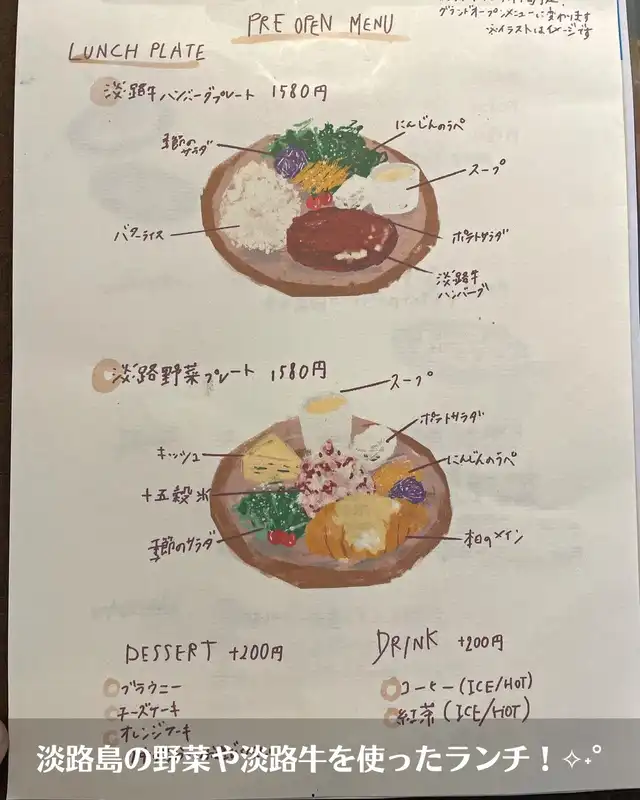 PRE OPEN MENU
グランドオープンメニューに変わります
※イラストはイメージです
LUNCH PLATE
淡路牛ハンバーグプレート 1580円
にんじんのラペ
季節のサラダ
スープ
バターライス
ポテトサラダ
淡路牛
ハンバーグ
淡路野菜プレート 1580円
スープ
ポテトサラダ
キッシュ
にんじんのラペ
十五穀米
季節のサラダ
本日のメイン
DESSERT +200円
DRINK +200円
ブラウニー
チーズケーキ
オレンジケーキ
コーヒー (ICE/HOT)
紅茶 (ICE/HOT)
淡路島の野菜や淡路牛を使ったランチ！✧˖°